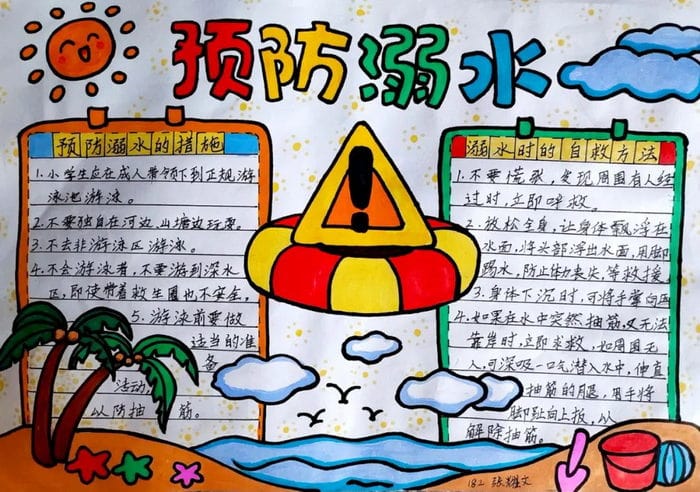 预防溺水
预防溺水的措施
1.小学生应在成人带领下到正规游
泳池游泳。
2.不要独自在河边、山塘边玩耍。
3.不去非游泳区游泳。
4.不会游泳者,不要游到深水
区,即使带着救生圈也不安全。
5.游泳前要做
适当的准
备
活动
以防抽筋。
溺水时的自救方法
1.不要慌张,发现周围有人经
过时,立即呼救。
2.放松全身,让身体飘浮在
水面,将头部浮出水面,用脚
踢水,防止体力丧失,等救援
3.身体下沉时,可将手掌向下
4.如果在水中突然抽筋,又无法
靠岸时,立即求救。如周围无
人,可深吸一口气潜入水中,伸直
抽筋的腿,用手将
脚趾向上扳,以
解除抽筋。
182 张耀文